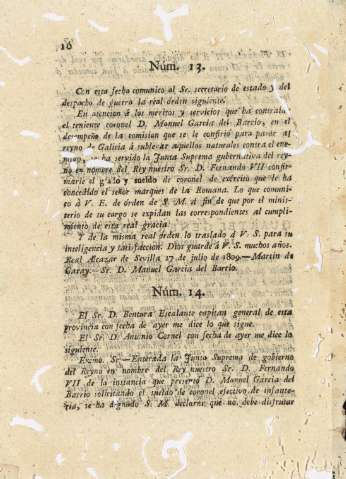 16
Núm. 13.
Con esta fecha comunico al Sr. secretario de estado y del
despacho de guerra la real órden siguiente.
En atencion á los meritos y servicios que ha contraido
el teniente coronel D. Manuel Garcia del Barrio, en el
desempeño de la comision que se le confirió para pasar al
reyno de Galicia á sublevar aquellos naturales contra el ene-
migo, se ha servido la Junta Suprema gubernativa del rey-
no en nombre del Rey nuestro Sr. D. Fernando VII confir-
marle el grado y sueldo de coronel de exército que le ha
concedido el señor marques de la Romana. Lo que comuni-
co á V. E. de órden de S. M. á fin de que por el minis-
terio de su cargo se expidan las correspondientes al cumpli-
miento de esta real gracia.
Y de la misma real órden lo traslado á V. S. para su
inteligencia y satisfaccion. Dios guarde á V. S. muchos años.
Real Alcazar de Sevilla 17 de julio de 1809.—Martin de
Garay.—Sr. D. Manuel Garcia del Barrio.
Núm. 14.
El Sr. D. Bentura Escalante capitan general de esta
provincia con fecha de ayer me dice lo que sigue.
El Sr. D. Antonio Cornel con fecha de ayer me dice lo
siguiente.
Excmo. Sr.—Enterada la Junta Suprema de gobierno
del Reyno en nombre del Rey nuestro Sr. D. Fernando
VII de la instancia que presentó D. Manuel Garcia del
Barrio solicitando el sueldo de coronel efectivo de infante-
ria, se ha dignado S. M. declarar que no debe disfrutar